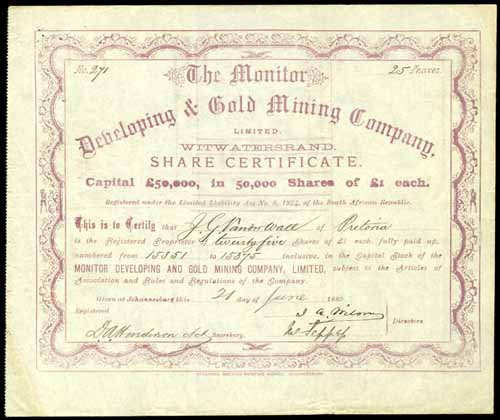 No. 271
25 Shares
The Monitor
Developing & Gold Mining Company,
LIMITED.
WITWATERSRAND.
SHARE CERTIFICATE.
Capital £50,000, in 50,000 Shares of £1 each.
Registered under the Limited Liability Act No. 6, 1874, of the South African Republic.
This is to Certify that J. G. Vander Wall of Pretoria
is the Registered Proprietor of twenty five Shares of £1 each, fully paid up,
numbered from 15351 to 15375 inclusive, in the Capital Stock of the
MONITOR DEVELOPING AND GOLD MINING COMPANY, LIMITED, subject to the Articles of
Association and Rules and Regulations of the Company.
Given at Johannesburg this 21 day of June
Registered
Act. Secretary.
Directors.